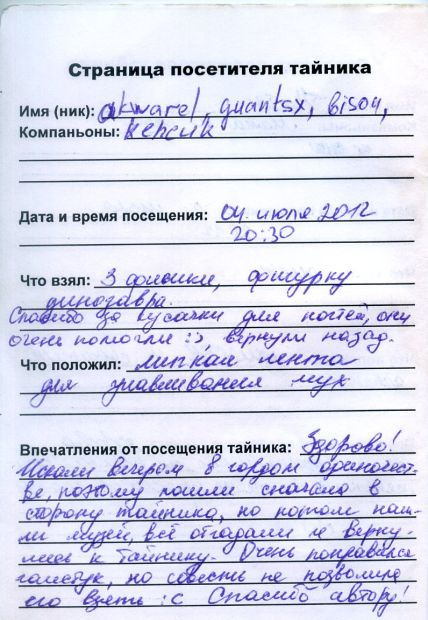 Страница посетителя тайника
Имя (ник): akwarel, quantsx, bison,
Компаньоны: кепсик
Дата и время посещения: 04 июля 2012
20:30
Что взял: 3 фишки, фигурку
динозавра.
Спасибо за кусачки для ногтей, они
очень помогли :), вернули назад.
Что положил: липкая лента
для улавливания мух
Впечатления от посещения тайника: Здорово!
Искали вечером в гордом одиночест-
ве, поэтому пошли сначала в
сторону тайника, но потом наш-
ли музей, всё отгадали и верну-
лись к тайнику. Очень понравился
галстук, но совесть не позволила
его взять :с Спасибо автору!